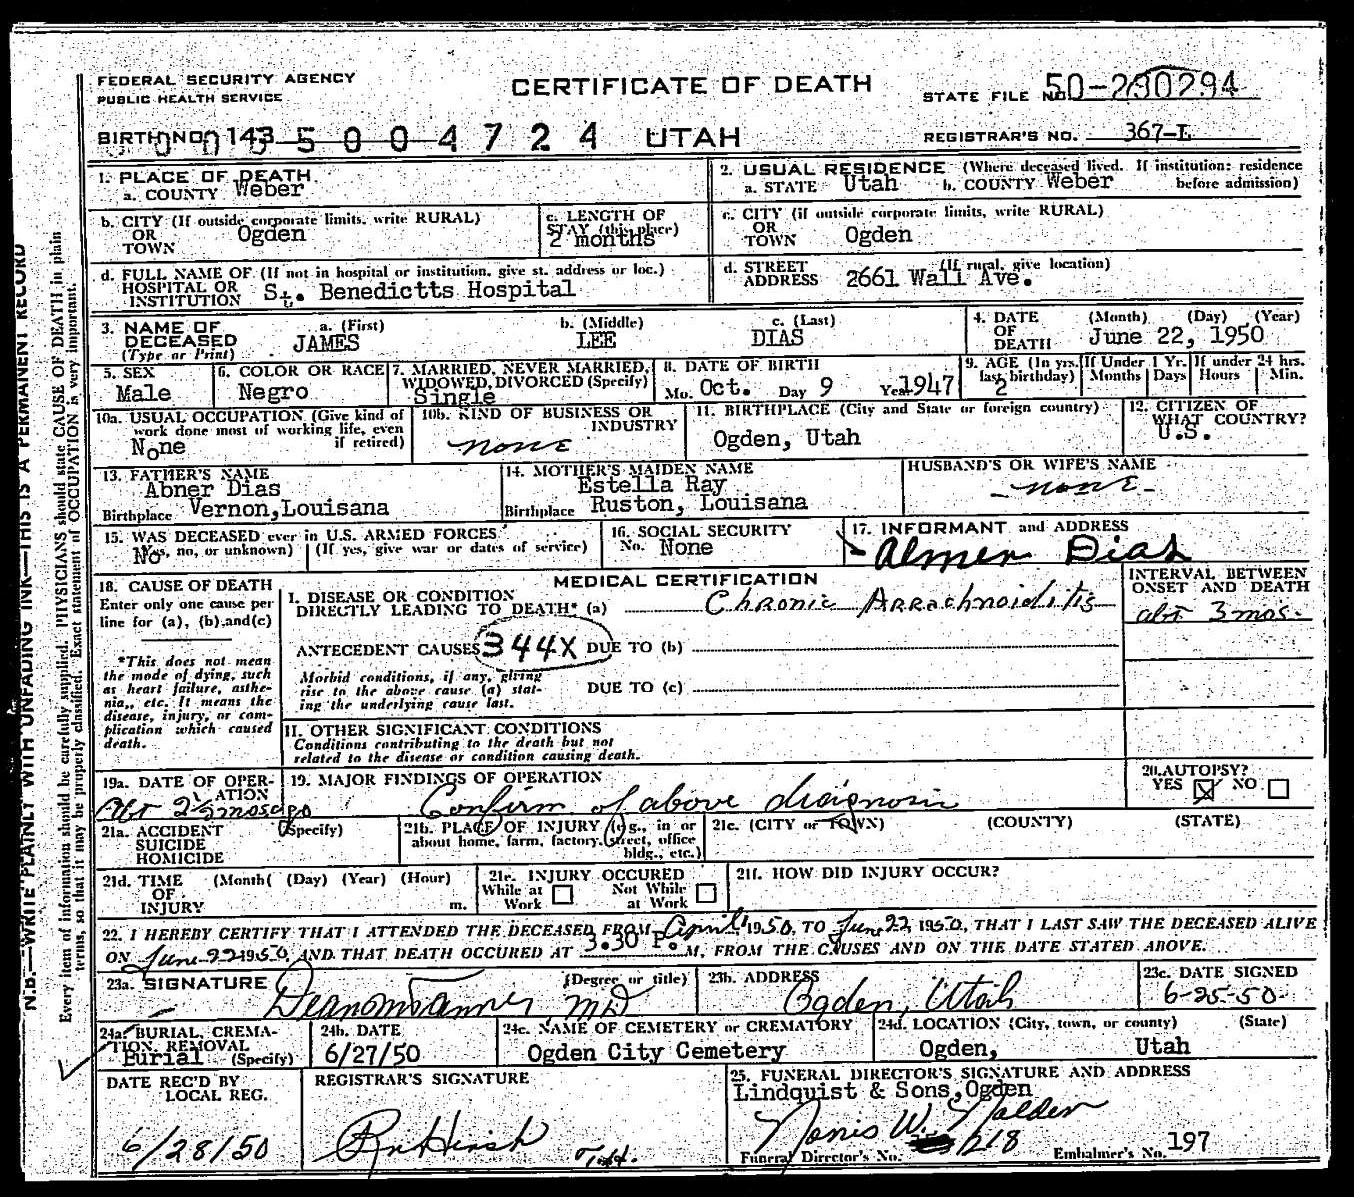 FEDERAL SECURITY AGENCY
PUBLIC HEALTH SERVICE
CERTIFICATE OF DEATH
STATE FILE NO. 50-280294
BIRTH NO. 143
0 0 0 5 0 0 4 7 2 4 UTAH
REGISTRAR'S NO. 367-L
N.B.—WRITE PLAINLY WITH UNFADING INK—THIS IS A PERMANENT RECORD
Every item of information should be carefully supplied. PHYSICIANS should state CAUSE OF DEATH in plain
terms, so that it may be properly classified. Exact statement of OCCUPATION is very important.
1. PLACE OF DEATH
a. COUNTY Weber
2. USUAL RESIDENCE (Where deceased lived. If institution: residence
a. STATE Utah b. COUNTY Weber before admission)
b. CITY (If outside corporate limits, write RURAL)
OR
TOWN Ogden
c. LENGTH OF
STAY (this place)
2 months
c. CITY (if outside corporate limits, write RURAL)
OR
TOWN Ogden
d. FULL NAME OF (If not in hospital or institution, give st. address or loc.)
HOSPITAL OR
INSTITUTION St. Benedictts Hospital
d. STREET (If rural, give location)
ADDRESS 2661 Wall Ave.
3. NAME OF DECEASED
(Type or Print)
a. (First) b. (Middle) c. (Last)
JAMES LEE DIAS
4. DATE OF DEATH (Month) (Day) (Year)
June 22, 1950
5. SEX
Male
6. COLOR OR RACE
Negro
7. MARRIED, NEVER MARRIED,
WIDOWED, DIVORCED (Specify)
Single
8. DATE OF BIRTH
Mo. Oct. Day 9 Year 1947
9. AGE (In yrs. last birthday)
2
If Under 1 Yr. Months Days
If under 24 hrs. Hours Min.
10a. USUAL OCCUPATION (Give kind of
work done most of working life, even
if retired)
None
10b. KIND OF BUSINESS OR
INDUSTRY
none
11. BIRTHPLACE (City and State or foreign country)
Ogden, Utah
12. CITIZEN OF
WHAT COUNTRY?
U.S.
13. FATHER'S NAME
Abner Dias
Birthplace Vernon,Louisana
14. MOTHER'S MAIDEN NAME
Estella Ray
Birthplace Ruston, Louisana
HUSBAND'S OR WIFE'S NAME
- none -
15. WAS DECEASED ever in U.S. ARMED FORCES?
(Yes, no, or unknown) (If yes, give war or dates of service)
No
16. SOCIAL SECURITY
No. None
17. INFORMANT and ADDRESS
Almer Dias
18. CAUSE OF DEATH
Enter only one cause per
line for (a), (b), and (c)
*This does not mean
the mode of dying, such
as heart failure, asthe-
nia,, etc. It means the
disease, injury, or com-
plication which caused
death.
MEDICAL CERTIFICATION
I. DISEASE OR CONDITION
DIRECTLY LEADING TO DEATH* (a) Chronic Arrachnoiditis
INTERVAL BETWEEN
ONSET AND DEATH
abt 3 mos.
ANTECEDENT CAUSES 344X DUE TO (b)
Morbid conditions, if any, giving
rise to the above cause (a) stat-
ing the underlying cause last.
DUE TO (c)
II. OTHER SIGNIFICANT CONDITIONS
Conditions contributing to the death but not
related to the disease or condition causing death.
19a. DATE OF OPER-
ATION
Abt 2 1/2 mos ago
19. MAJOR FINDINGS OF OPERATION
Confirm of above diagnosis
20. AUTOPSY?
YES ☒ NO ☐
21a. ACCIDENT (Specify)
SUICIDE
HOMICIDE
21b. PLACE OF INJURY (e.g., in or
about home, farm, factory, street, office
bldg., etc.)
21c. (CITY or TOWN) (COUNTY) (STATE)
21d. TIME (Month( (Day) (Year) (Hour)
OF
INJURY m.
21e. INJURY OCCURED
While at Work ☐ Not While at Work ☐
21f. HOW DID INJURY OCCUR?
22. I HEREBY CERTIFY THAT I ATTENDED THE DECEASED FROM April 1950, TO June 22 1950, THAT I LAST SAW THE DECEASED ALIVE
ON June 22 1950, AND THAT DEATH OCCURED AT 3.30 P. M, FROM THE CAUSES AND ON THE DATE STATED ABOVE.
23a. SIGNATURE (Degree or title)
Dean Tanner MD
23b. ADDRESS
Ogden, Utah
23c. DATE SIGNED
6-25-50
24a. BURIAL, CREMA-
TION, REMOVAL
Burial (Specify)
24b. DATE
6/27/50
24c. NAME OF CEMETERY or CREMATORY
Ogden City Cemetery
24d. LOCATION (City, town, or county) (State)
Ogden, Utah
DATE REC'D BY
LOCAL REG.
6/28/50
REGISTRAR'S SIGNATURE
25. FUNERAL DIRECTOR'S SIGNATURE AND ADDRESS
Lindquist & Sons,Ogden
Funeral Director's No. 1218 Embalmer's No. 197